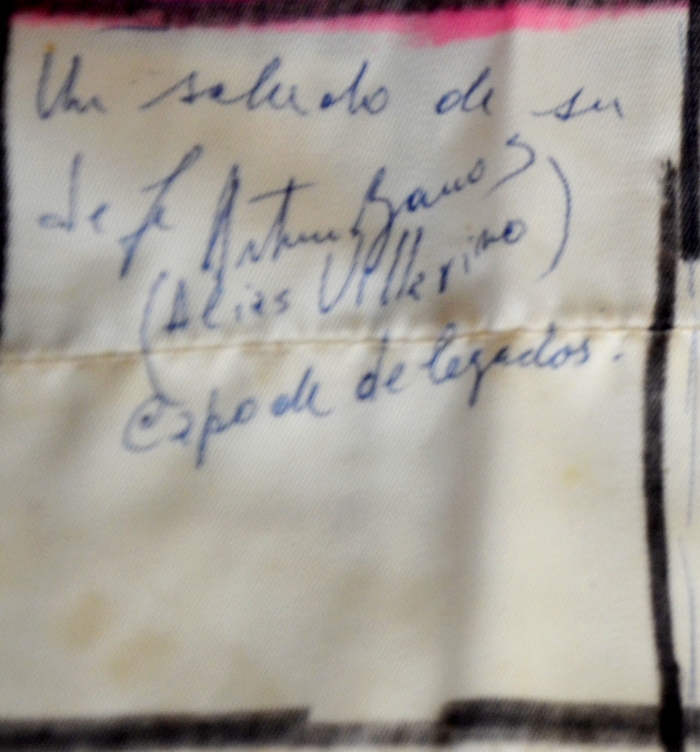 Un saludo de su
Jefe Arturo Baños
(Alias Vellerino)
Capo de delegados.